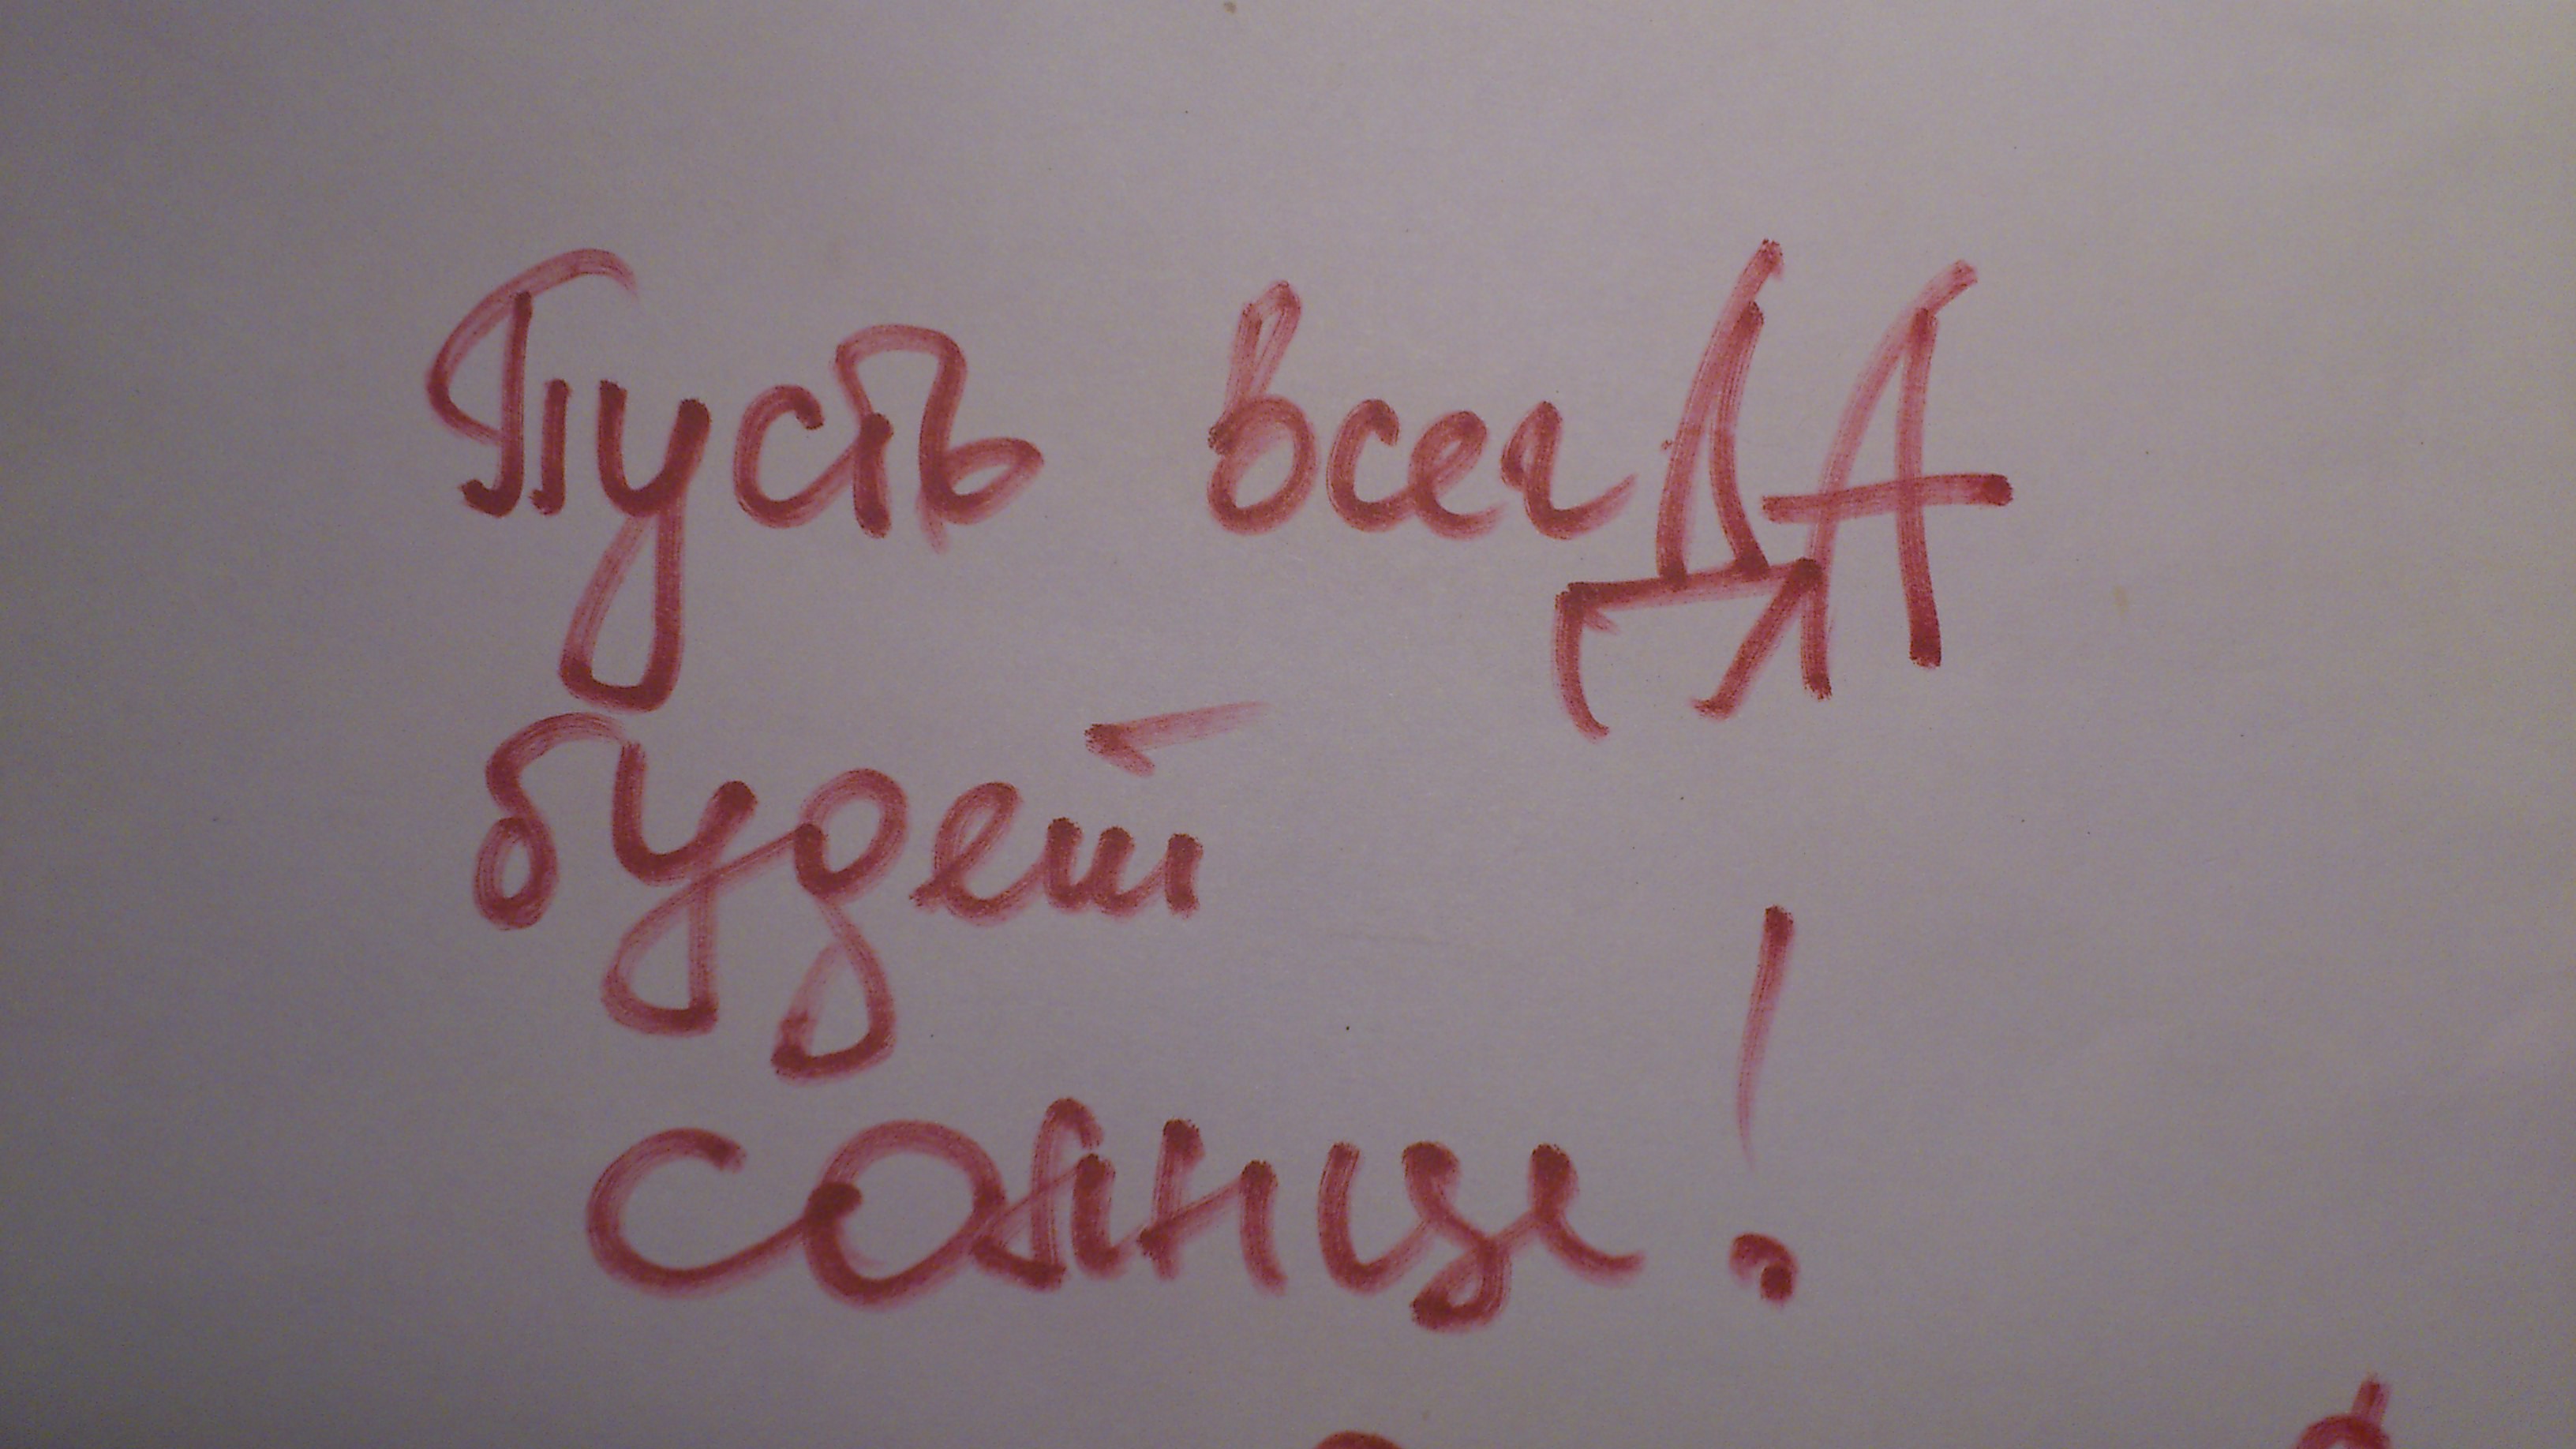 Пусть всегДА
будет
солнце!